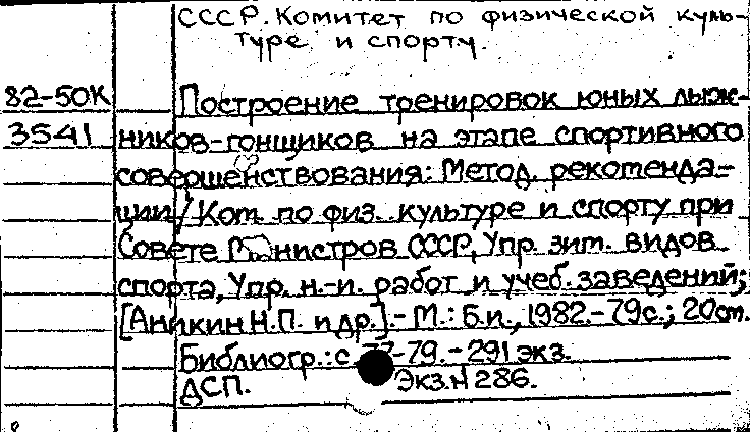 СССР. Комитет по физической куль-
туре и спорту.
82-50К Построение тренировок юных лыж-
3541 ников-гонщиков на этапе спортивного
совершенствования: Метод. рекоменда-
ции / Ком. по физ. культуре и спорту при
Совете Министров СССР, Упр. зим. видов
спорта, Упр. н.-и. работ и учеб. заведений;
[Аникин Н.П. и др.].- М.: Б.и., 1982.-79с.; 20см.
Библиогр.: с. -79. - 291 экз.
ДСП. Экз.N 286.